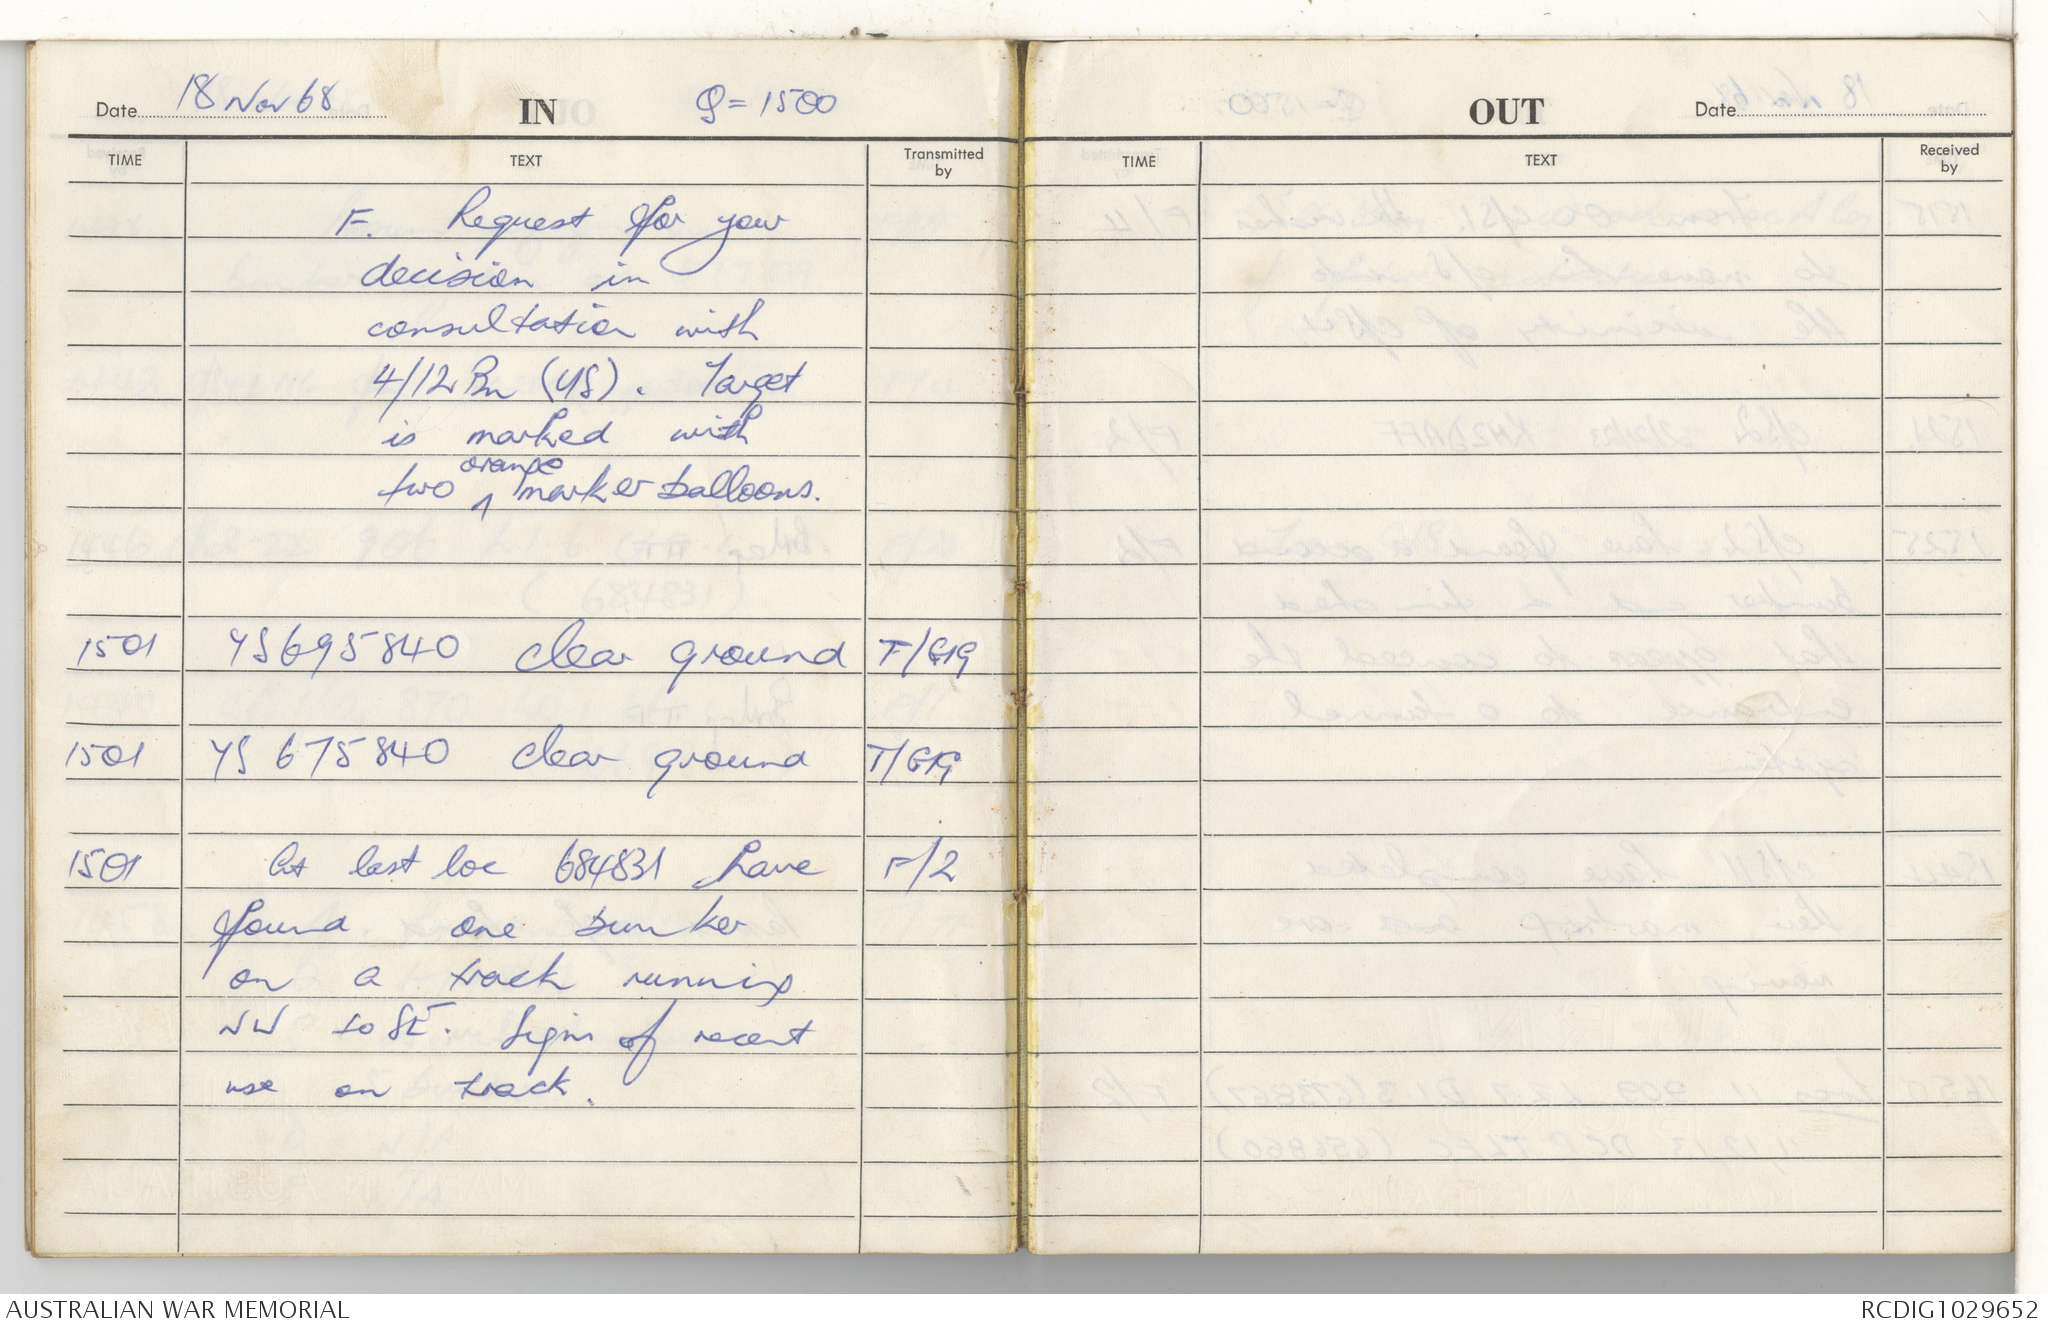 Date 18 Nov 68 IN Q = 1500
TIME TEXT Transmitted by
F. Request for your
decision in
consultation with
4/12 Bn (US). Target
is marked with
two orange marker balloons.
1501 YS695840 clear ground F/GIG
1501 YS 675840 clear ground T/GIG
1501 At last loc 684831 have F/2
found one bunker
on a track running
NW to SE. Signs of recent
use on track.
OUT Date
TIME TEXT Received by
AUSTRALIAN WAR MEMORIAL RCDIG1029652